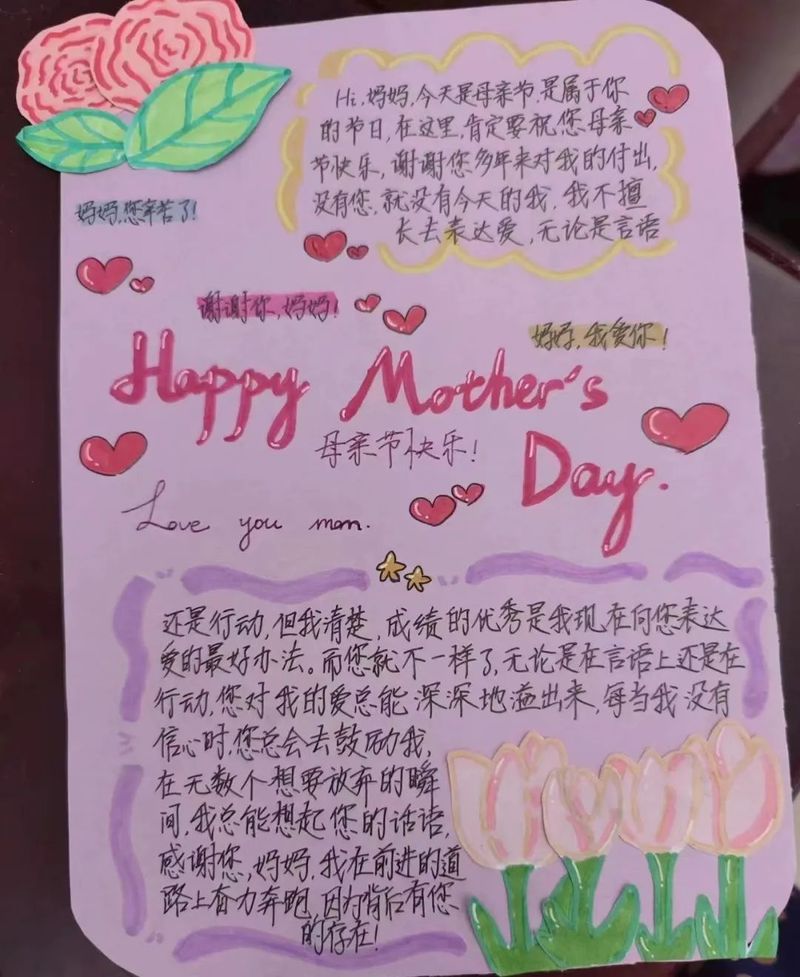 Hi,妈妈,今天是母亲节,是属于你
的节日,在这里,肯定要祝您母亲
节快乐,谢谢您多年来对我的付出,
没有您,就没有今天的我,我不擅
长去表达爱,无论是言语
妈妈,您辛苦了!
谢谢你,妈妈!
妈妈,我爱你!
Happy Mother's
母亲节快乐!
Day.
Love you mom.
还是行动,但我清楚,成绩的优秀是我现在向您表达
爱的最好办法。而您就不一样了,无论是在言语上还是在
行动,您对我的爱总能深深地溢出来,每当我没有
信心时,您总会去鼓励我,
在无数个想要放弃的瞬
间,我总能想起您的话语,
感谢您,妈妈,我在前进的道
路上奋力奔跑,因为背后有您
的存在!